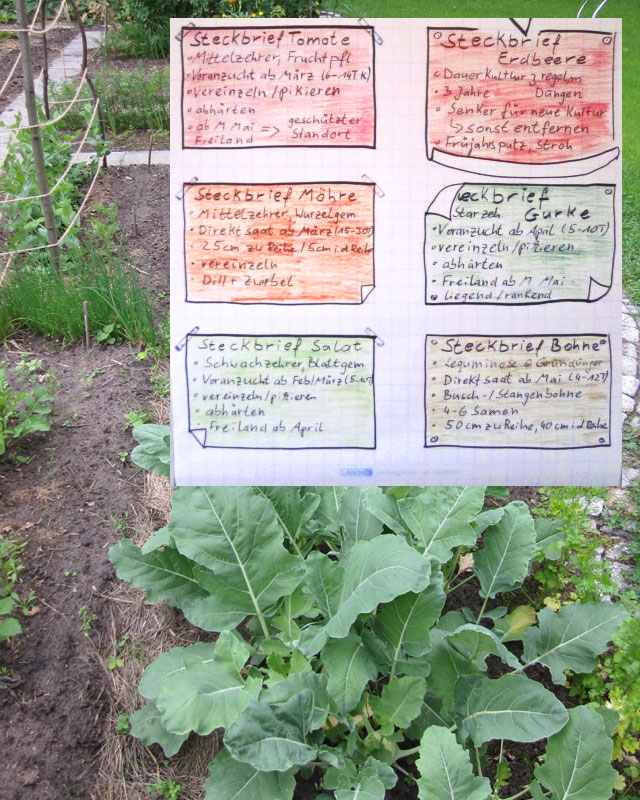 Steckbrief Tomate
• Mittelzehrer, Fruchtpfl
• Voranzucht ab März (6-14T K)
• vereinzeln/pikieren
• abhärten
• ab M Mai => geschützter
Freiland Standort
Steckbrief
Erdbeere
• Dauerkultur, regelm
• 3 Jahre Düngen
• Senker für neue Kultur
↳ sonst entfernen
• Frühjahrsputz, Stroh
Steckbrief Möhre
• Mittelzehrer, Wurzelgem
• Direktsaat ab März (15-30T)
25cm zu Reihe/5cm i d Reihe
• vereinzeln
• Dill + Zwiebel
eckbrief
Starzeh Gurke
• Voranzucht ab April (5-10T)
• vereinzeln/pikieren
• abhärten
• Freiland ab M Mai
• liegend/rankend
Steckbrief Salat
• Schwachzehrer, Blattgem
• Voranzucht ab Feb/März (5-10T)
• vereinzeln/pikieren
• abhärten
• Freiland ab April
Steckbrief Bohne
• Leguminose Gründünger
• Direktsaat ab Mai (4-12T)
• Busch-/Stangenbohne
• 4-6 Samen
• 50cm zu Reihe, 40cm i d Reihe